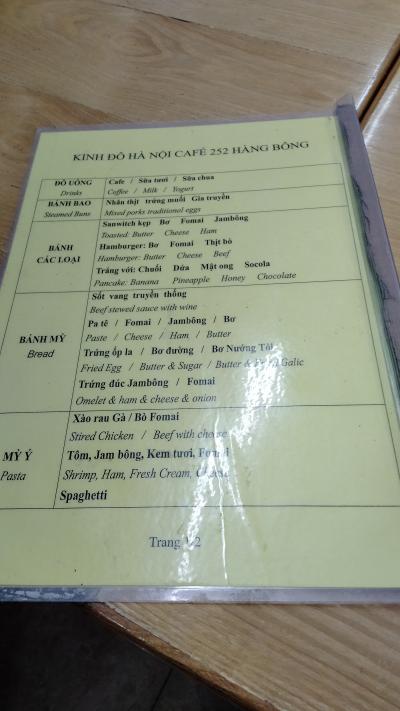 KINH ĐÔ HÀ NỘI CAFÉ 252 HÀNG BÔNG
ĐỒ UỐNG
Drinks
Cafe / Sữa tươi / Sữa chua
Coffee / Milk / Yogurt
BÁNH BAO
Steamed Buns
Nhân thịt trứng muối Gia truyền
Mixed porks traditional eggs
BÁNH
CÁC LOẠI
Sanwitch kẹp Bơ Fomai Jambông
Toasted: Butter Cheese Ham
Hamburger: Bơ Fomai Thịt bò
Hamburger: Butter Cheese Beef
Tráng với: Chuối Dứa Mật ong Socola
Pancake: Banana Pineapple Honey Chocolate
BÁNH MỲ
Bread
Sốt vang truyền thống
Beef stewed sauce with wine
Pa tê / Fomai / Jambông / Bơ
Paste / Cheese / Ham / Butter
Trứng ốp la / Bơ đường / Bơ Nướng Tỏi
Fried Egg / Butter & Sugar / Butter & Galic
Trứng đúc Jambông / Fomai
Omelet & ham & cheese & onion
MỲ Ý
Pasta
Xào rau Gà / Bò Fomai
Stired Chicken / Beef with cheese
Tôm, Jam bông, Kem tươi, Fomai
Shrimp, Ham, Fresh Cream, Cheese
Spaghetti
Trang 1/2